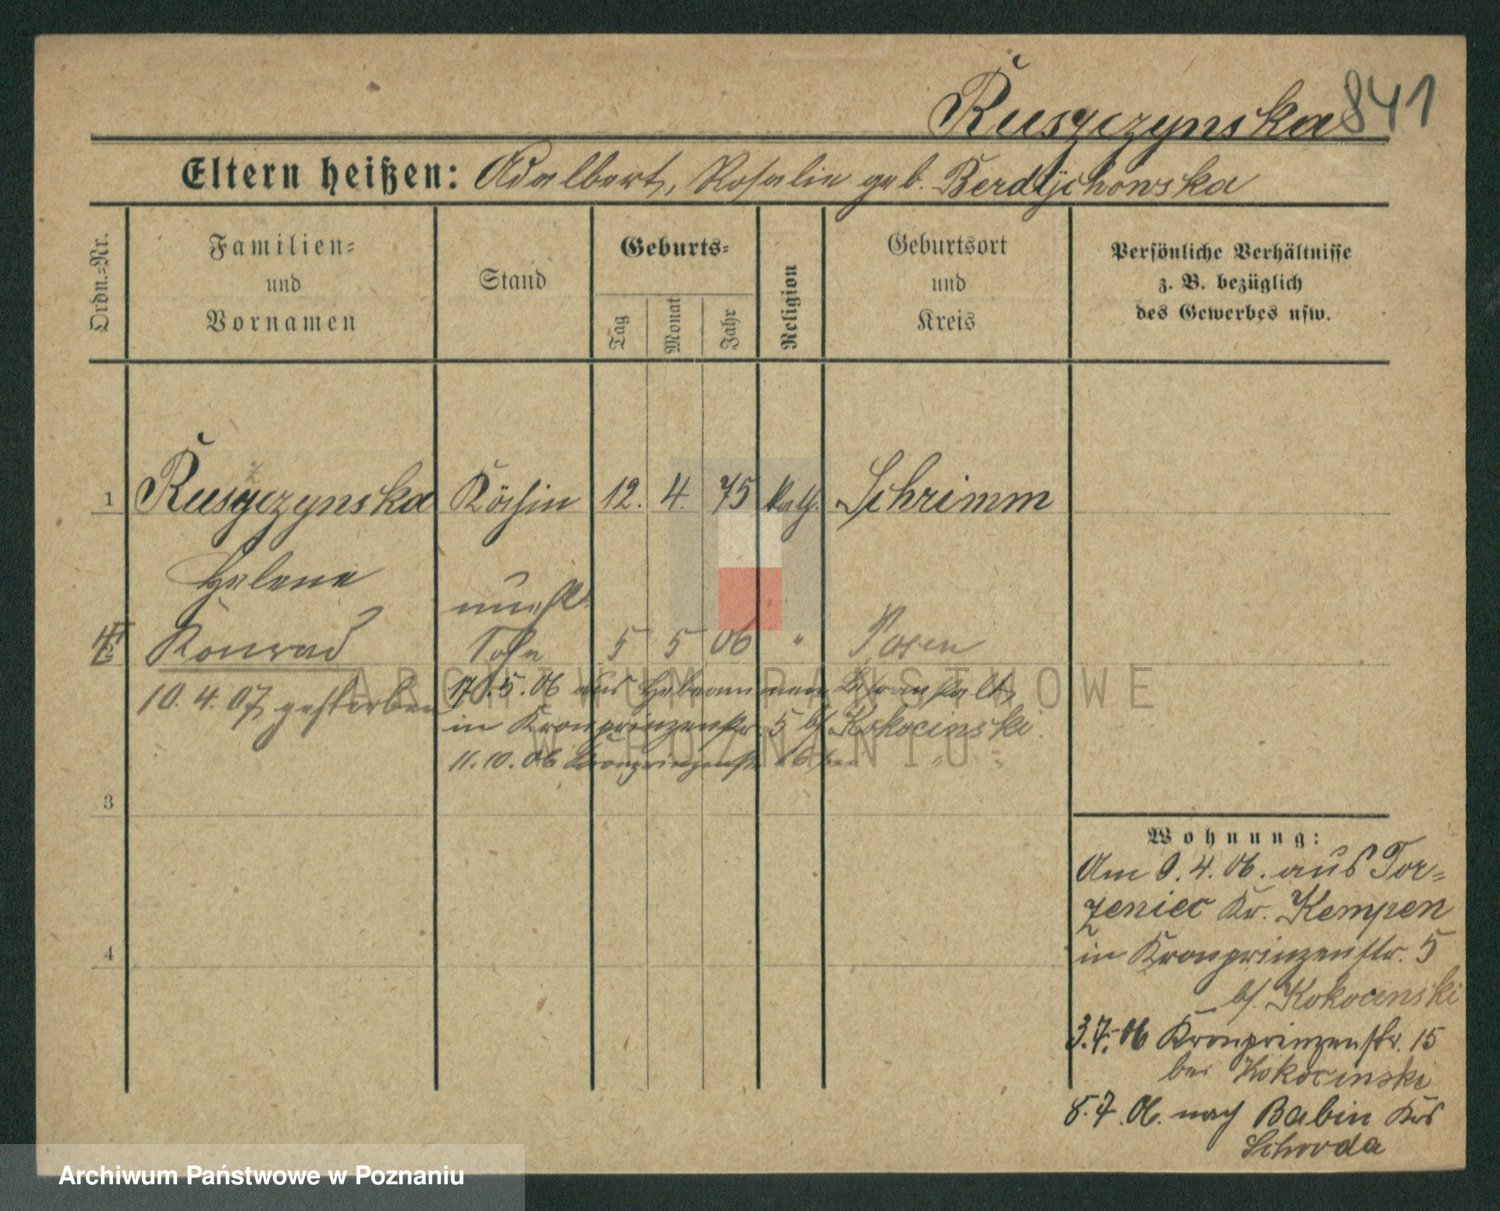 Ruszczynska 841
Eltern heißen: Adalbert, Rosalie geb. Berdychowska
Ordn.=Nr.
Familien=
und
Vornamen
Stand
Geburts=
Tag
Monat
Jahr
Religion
Geburtsort
und
Kreis
Persönliche Verhältnisse
z. B. bezüglich
des Gewerbes usw.
1 Ruszczynska Köchin 12. 4. 75 kath. Schrimm
Helene
unehl.
Konrad Sohn 5 5 06 " Posen
10.4.07 gestorben
17.5.06 aus Hebammen
in Kronprinzenstr. 5 bei Kokocinski.
11.10.06 Kronprinzenstr. bei " "
3
4
Wohnung:
Am 9.4.06. aus Tor=
zeniec Kr. Kempen
in Kronprinzenstr. 5
bei Kokocinski
3.7.06 Kronprinzenstr. 15
bei Kokocinski
8.7.06. nach Babin Krs
Schroda
ARCHIWUM PAŃSTWOWE
W POZNANIU
Archiwum Państwowe w Poznaniu